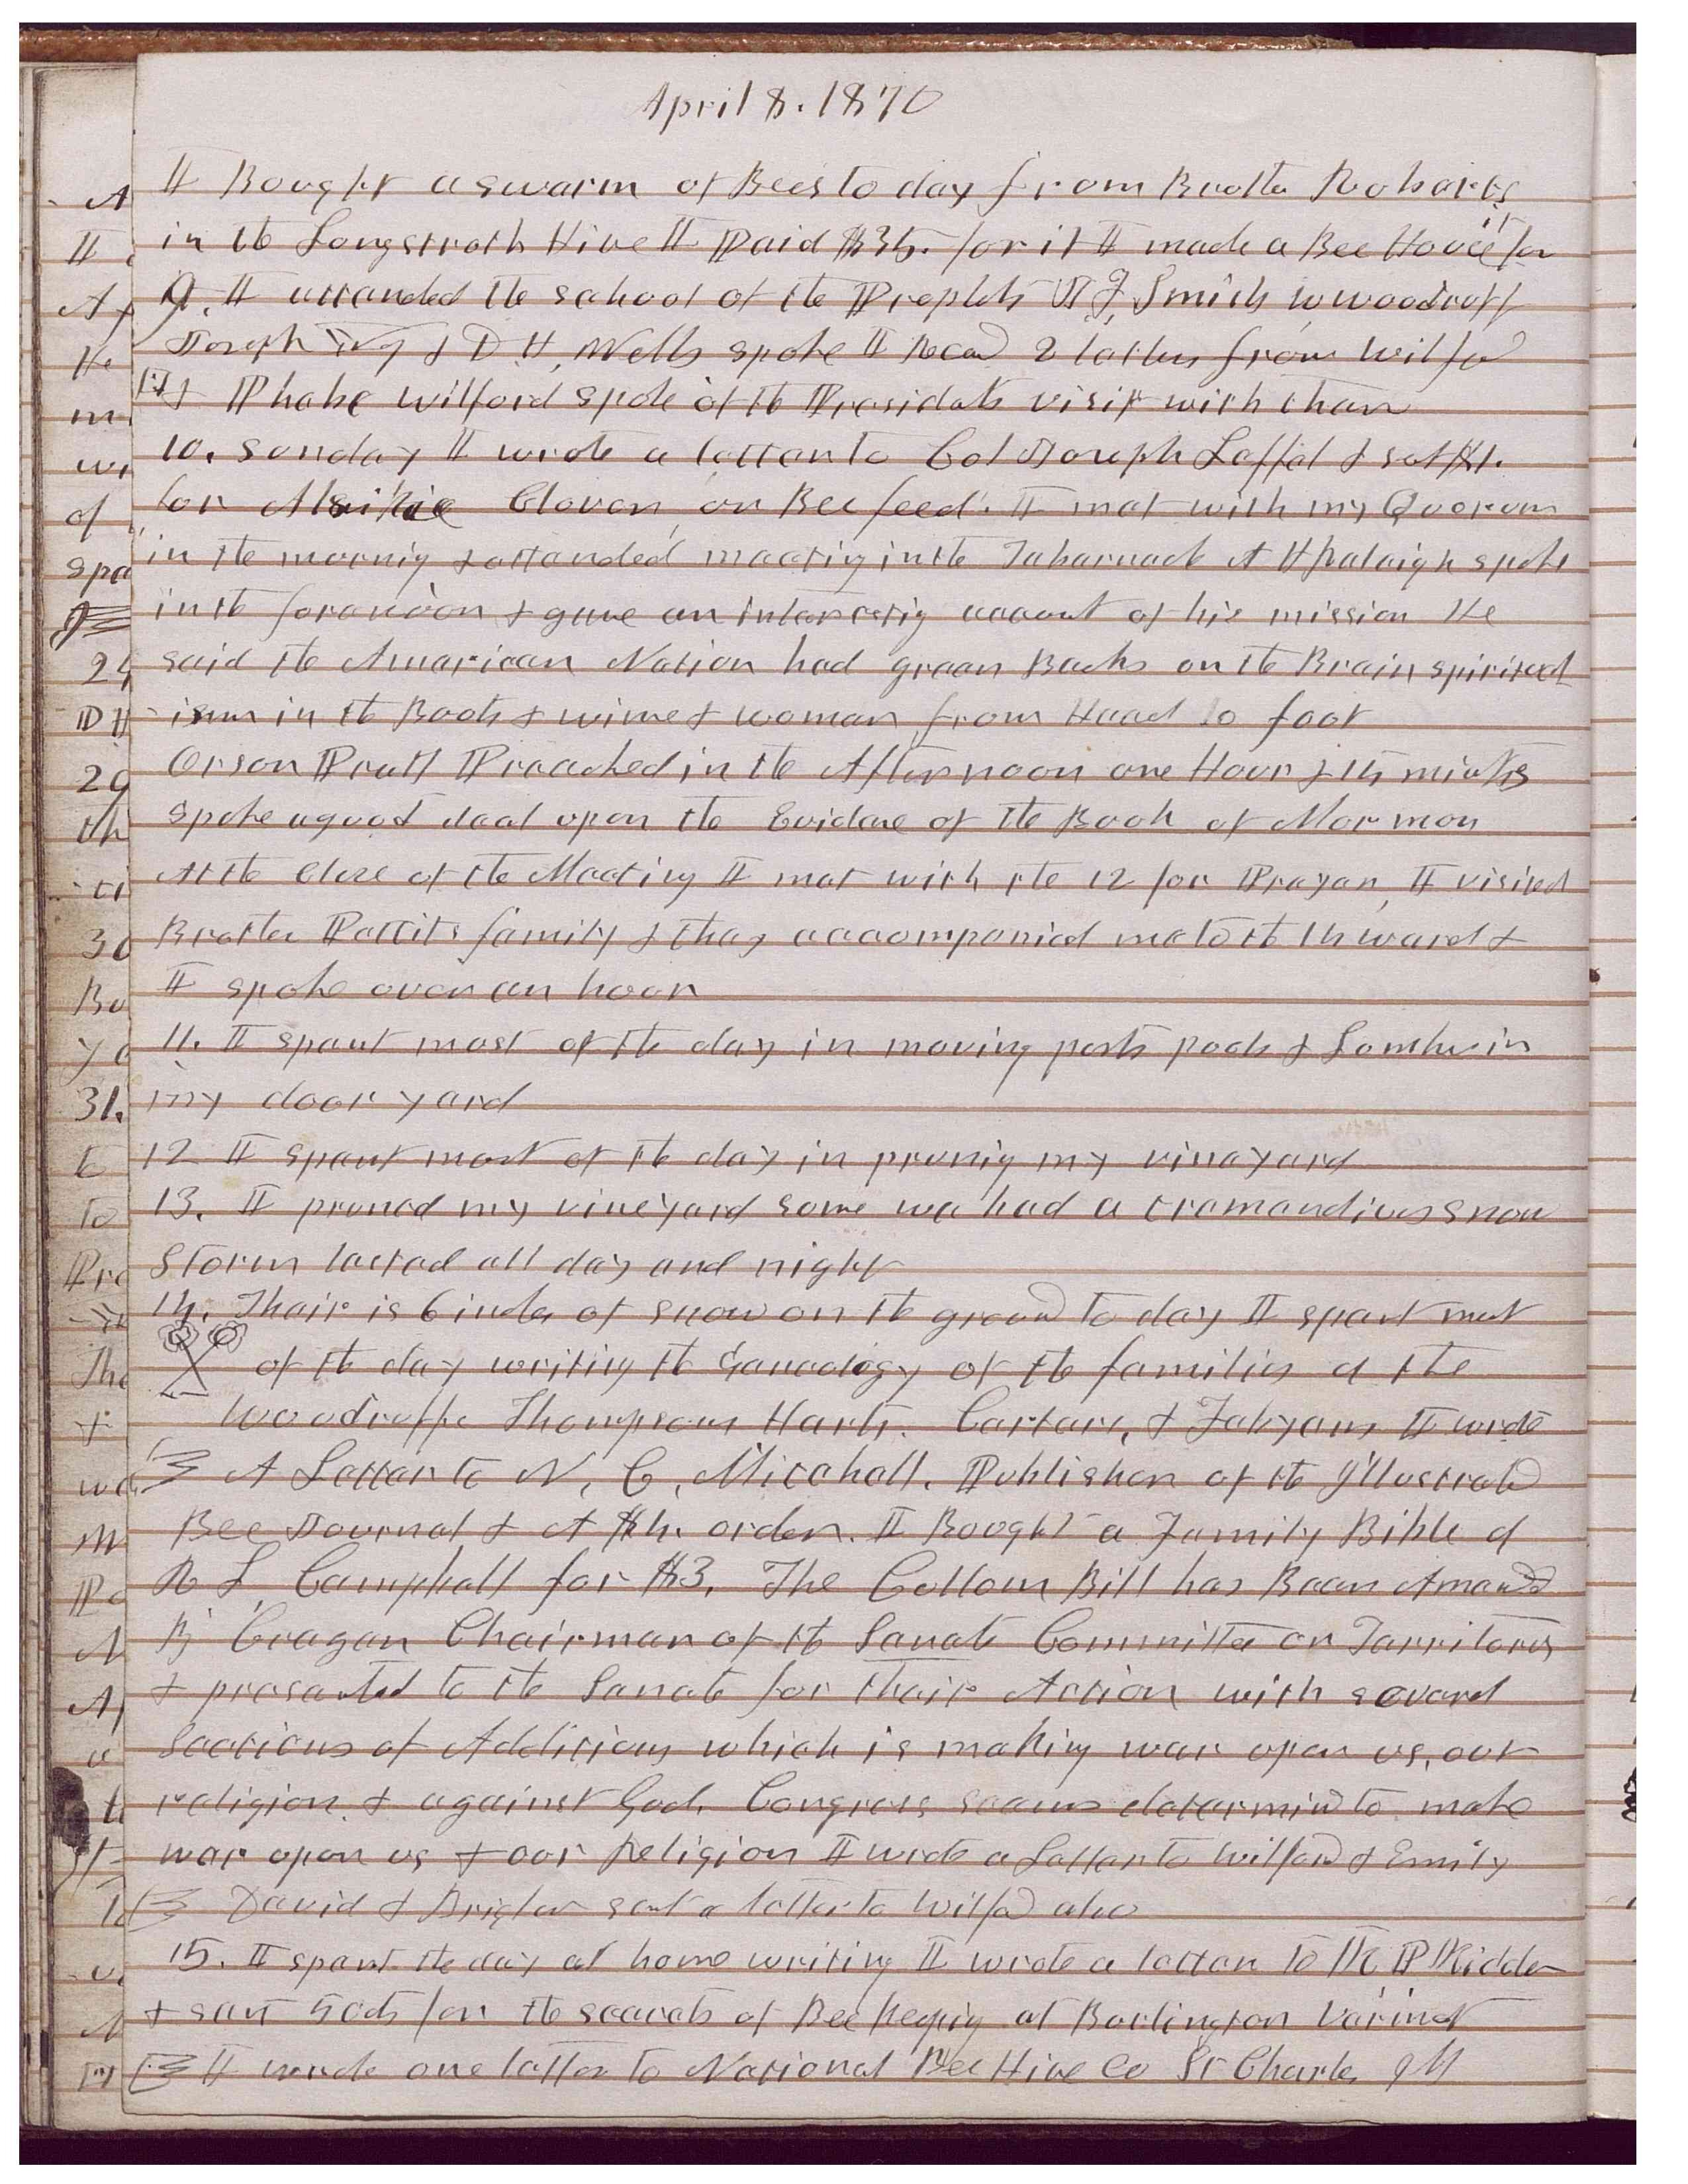 April 8. 1870
I Bought a swarm of Bees to day from Brother Robarts
in the Longstroth Hive I Paid $35. for it I made a Bee House for it
9. I attanded the school of the Prophets J F Smith W Woodruff
Joseph Young & D H, Wells spoke I Recd 2 letters from Wilford
& Phebe Wilford spoke of the Presidents visit with them
10. Sunday I wrote a letter to Col Joseph Leffel & sent $1.
for Alsike Clover, or Bee feed. I met with my Quorum
in the mornig & attended meetig in the Tabernacle A H Raleigh spoke
in the forenoon & gave an interestig account of his mission He
said the American Nation had green Backs on the Brain spiritual
ism in the Boots & wine & woman from Head to foot
Orson Pratt Preached in the Afternoon one Hour & 15 minuts
spoke a good deal upon the Evidence of the Book of Mormon
At the Close of the Meeting I met with the 12 for Prayer, I visited
Brother Pettits family & they accompanied me to the 14 ward &
I spoke over an hour
11. I spent most of the day in moving posts poles & Lumber in
my door yard
12 I spent most of the day in prunig my vineyard
13. I pruned my vineyard some we had a tremendious snow
storm lasted all day and night
14. Their is 6 inches of snow on the ground to day I spent most
of the day writing the Genealogy of the families of the
Woodruffs Thompsons Harts. Carters, & Fabyans I wrote
A Letter to N, C, Mitchell. Publisher of the Illustrated
Bee Journal & A $4. order. I Bought a Family Bible of
R L Campbell for $3. The Cullom Bill has Been Amended
By Cragan Chairman of the Senate Committee on Territories
& presented to the Senate for their Action with several
Sections of Additions which is making war upon us, our
religion & against God. Congress seems determined to make
war upon us & our Religion I wrote a Letter to Wilford & Emily
David & Brigham sent a letter to Wilford also
15. I spent the day at home writing I wrote a letter to K P Kidder
& sent 50cts for the secrets of Bee keepig at Burlington Varmot
I wrote one letter to National Bee Hive Co St Charles Ill